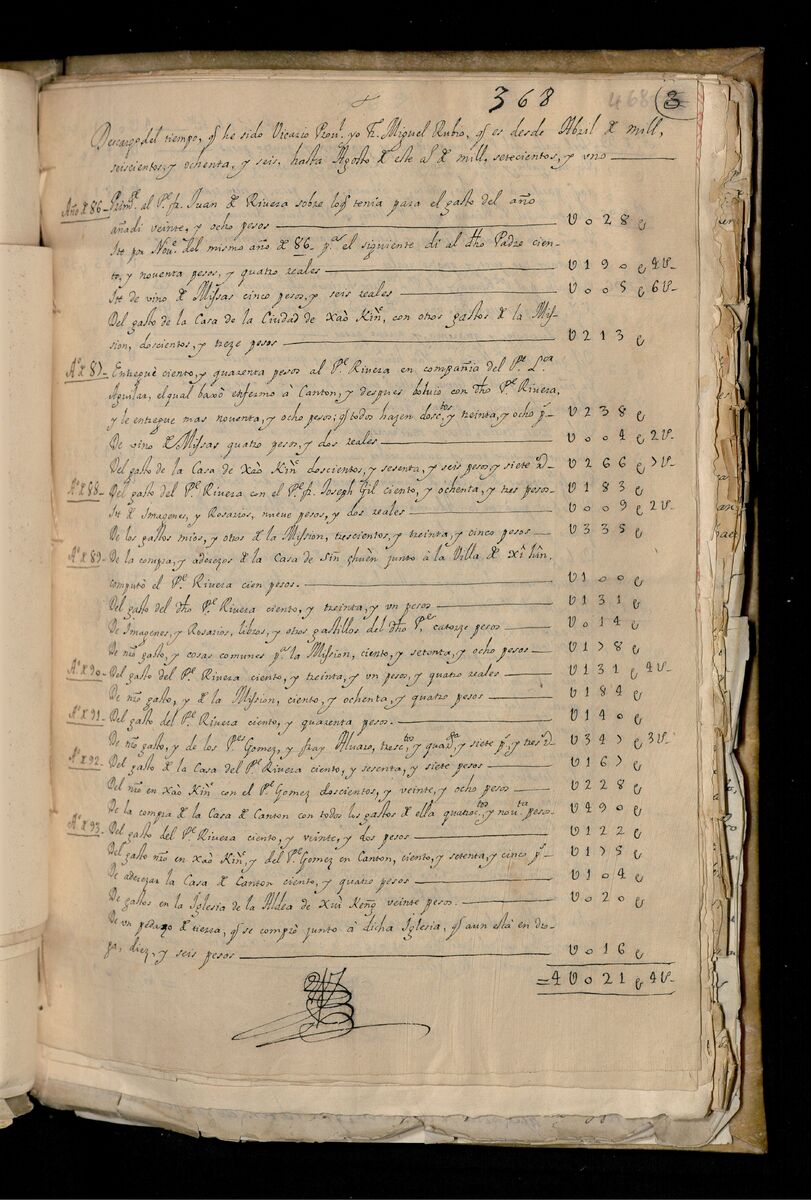 368
468
3
Descargo del tiempo, q̃ he sido Vicario Prou.l yo Fr. Miguel Rubio, q̃ es desde Abril d̃ mill,
seiscientos, y ochenta, y seis, hasta Agosto d̃ este al d̃ mill, setecientos, y uno
Año d̃ 86- Prim.te al P.e fr. Juan d̃ Rivera sobre loq̃ tenia para el gasto del año
añadi veinte, y ocho pesos U028
Itt por Nou.e del mismo año d̃ 86 p.a el siguiente di al dho Padre cien-
to, y noventa pesos, y quatro reales U190 4
Itt de vino d̃ Missas cinco pesos, y seis reales U005 6
Del gasto de la Casa de la Ciudad de Xaò Kiñ, con otros gastos d̃ la Mis-
sion, doscientos, y treze pesos U213
A.o d̃ 87- Entreguè ciento, y quarenta pesos al P.e Rivera en compañia del P.e
Aguilar, elqual baxò enfermo à Canton, y despues boluio con dho P.e Rivera,
y le entregue mas noventa, y ocho pesos; q̃ todos hazen dosc.tos, y treinta, y ocho p.s U238
De vino d̃ Missas quatro pesos, y dos reales U004 2
Del gasto de la Casa de Xaò Kiñ doscientos, y sesenta, y seis pesos y siete U266 7
A.o d̃ 88- Del gasto del P.e Rivera con el P.e fr. Joseph Gil ciento, y ochenta, y tres pesos U183
Itt d̃ Imagenes, y Rosarios, nueve pesos, y dos reales U009 2
De los gastos mios, y otros d̃ la Mission, trescientos, y treinta, y cinco pesos U335
A.o d̃ 89- De la compra, y aderezos d̃ la Casa de Siñ chuên junto à la Villa d̃ Xî hîn,
computò el P.e Rivera cien pesos. U100
Del gasto del dho P.e Rivera ciento, y treinta, y vn pesos U131
De Imagenes, y Rosarios, libros, y otros gastillos del dho P.e catorze pesos U014
De nr̃o gasto, y cosas comunes p.a la Mission, ciento, y setenta, y ocho pesos U178
A.o d̃ 90- Del gasto del P.e Rivera ciento, y treinta, y vn pesos, y quatro reales U131 4
De nr̃o gasto, y d̃ la Mission, ciento, y ochenta, y quatro pesos U184
A.o d̃ 91- Del gasto del P.e Rivera ciento, y quarenta pesos. U140
De nr̃o gasto, y de los P.es Gomez, y fray Alvaro, tresc.tos y quar.ta, y siete p.s, y tres U347 3
A.o d̃ 92- Del gasto d̃ la Casa del P.e Rivera ciento, y sesenta, y siete pesos U167
Del nr̃o en Xaò Kiñ con el P.e Gomez doscientos, y veinte, y ocho pesos U228
De la compra d̃ la Casa d̃ Canton con todos los gastos d̃ ella quatroc.tos, y nou.ta pesos U490
A.o d̃ 93- Del gasto del P.e Rivera ciento, y veinte, y dos pesos U122
Del gasto nr̃o en Xaò Kiñ, y del P.e Gomez en Canton, ciento, y setenta, y cinco p.s U175
De aderezar la Casa d̃ Canton ciento, y quatro pesos U104
De gastos en la Iglesia de la Aldea de Xuì Keng veinte pesos. U020
De vn pedazo d̃ tierra, q̃ se comprò junto à dicha Iglesia, q̃ aun està en dro-
ga, diez, y seis pesos U016
=4U021 4